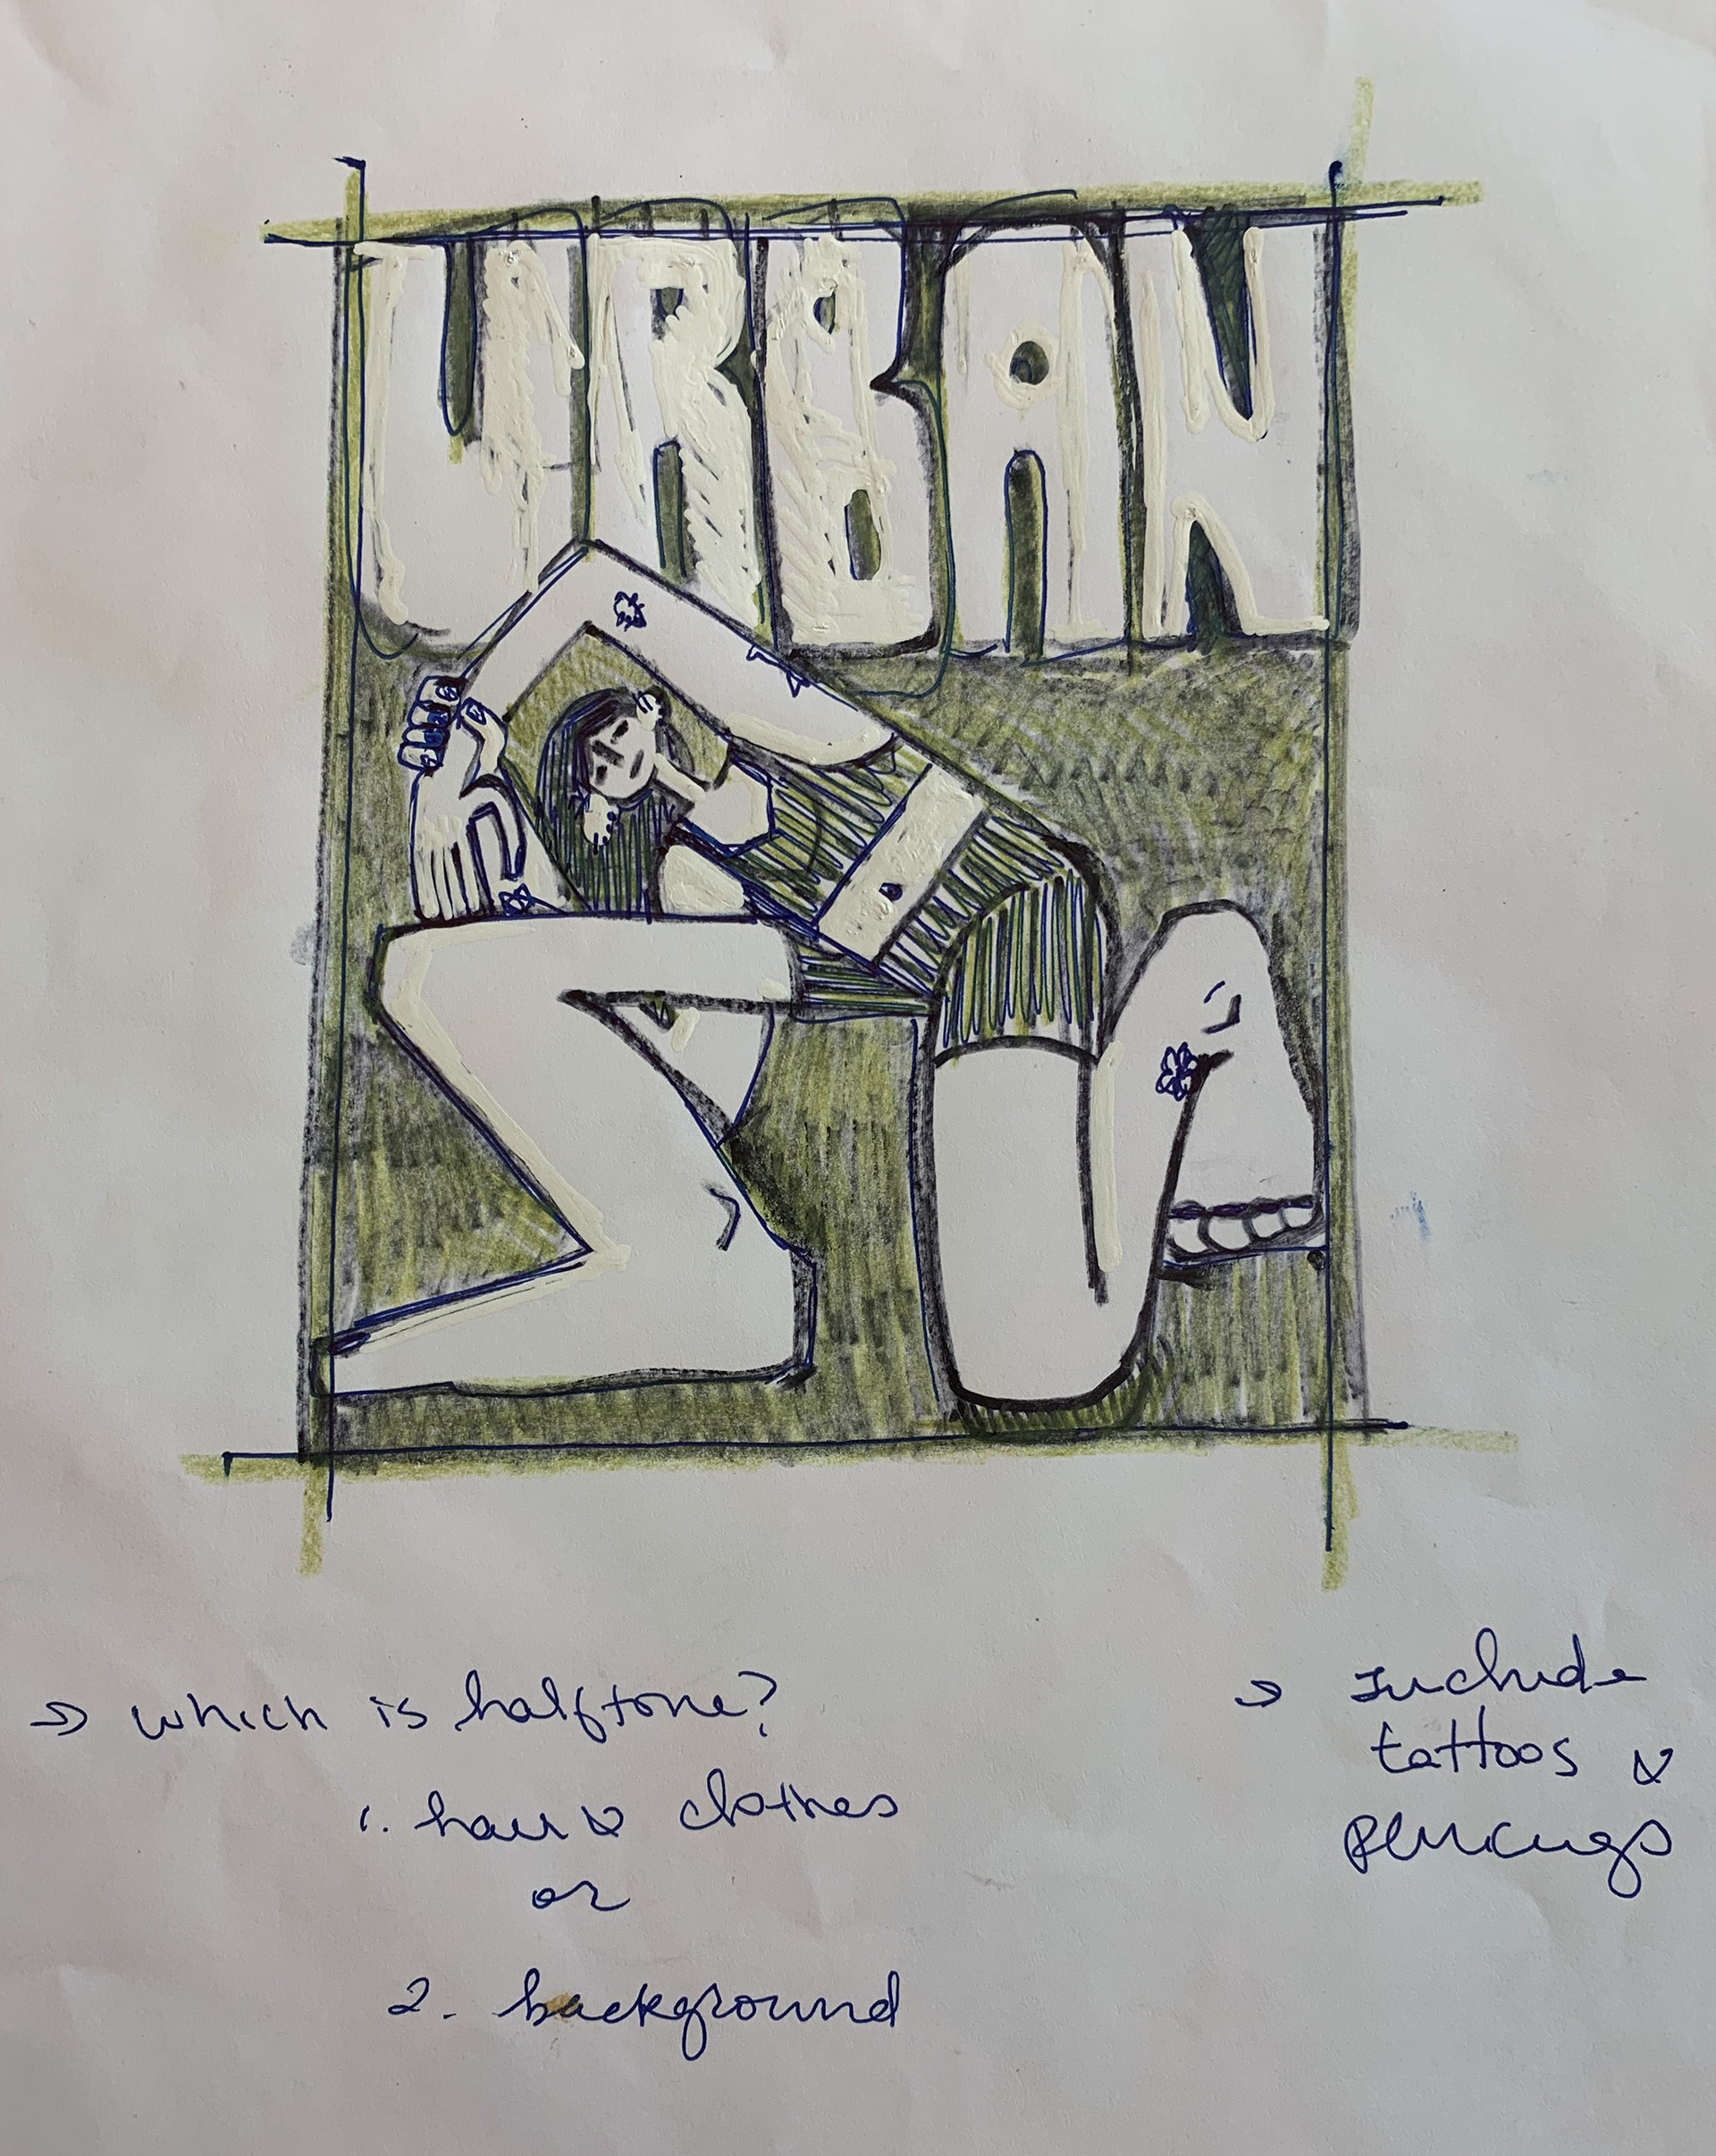 URBAN
→ which is halftone?
1. hair & clothes
or
2. background
→ Include
tattoos &
piercings